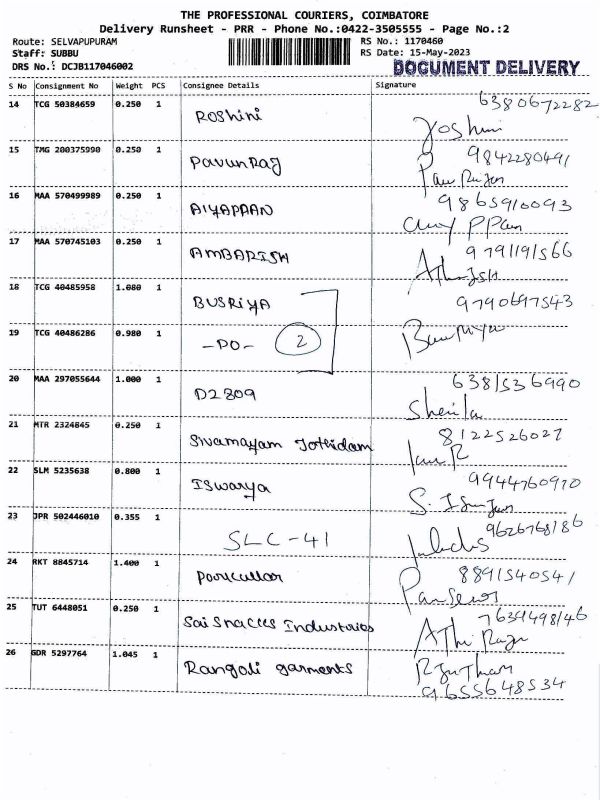 THE PROFESSIONAL COURIERS, COIMBATORE
Delivery Runsheet - PRR - Phone No.:0422-3505555 - Page No.:2
Route: SELVAPUPURAM RS No.: 1170460
Staff: SUBBU RS Date: 15-May-2023
DRS No.: DCJB117046002 DOCUMENT DELIVERY
S No Consignment No Weight PCS Consignee Details Signature
14 TCG 50384659 0.250 1 Roshini 6380672282
Yoshini
15 TMG 200375990 0.250 1 PavunRaj 9842280491
16 MAA 570499989 0.250 1 AIYAPPAN 9865910093
17 MAA 570745103 0.250 1 AMBARISH 9791191566
18 TCG 40485958 1.080 1 BUSRIYA 9790697543
19 TCG 40486286 0.980 1 -DO- 2
20 MAA 297055644 1.000 1 D2 809 6381536990
Sheila
21 MTR 2324845 0.250 1 Sivamayam Jothidam 8122526027
22 SLM 5235638 0.800 1 ISwarya 9944760970
23 JPR 502446010 0.355 1 SLC-41 9626768186
24 RKT 8845714 1.400 1 8891540541
25 TUT 6448051 0.250 1 Sai Snacks Industries 7639498146
26 GDR 5297764 1.045 1 Rangoli garments
9655648534